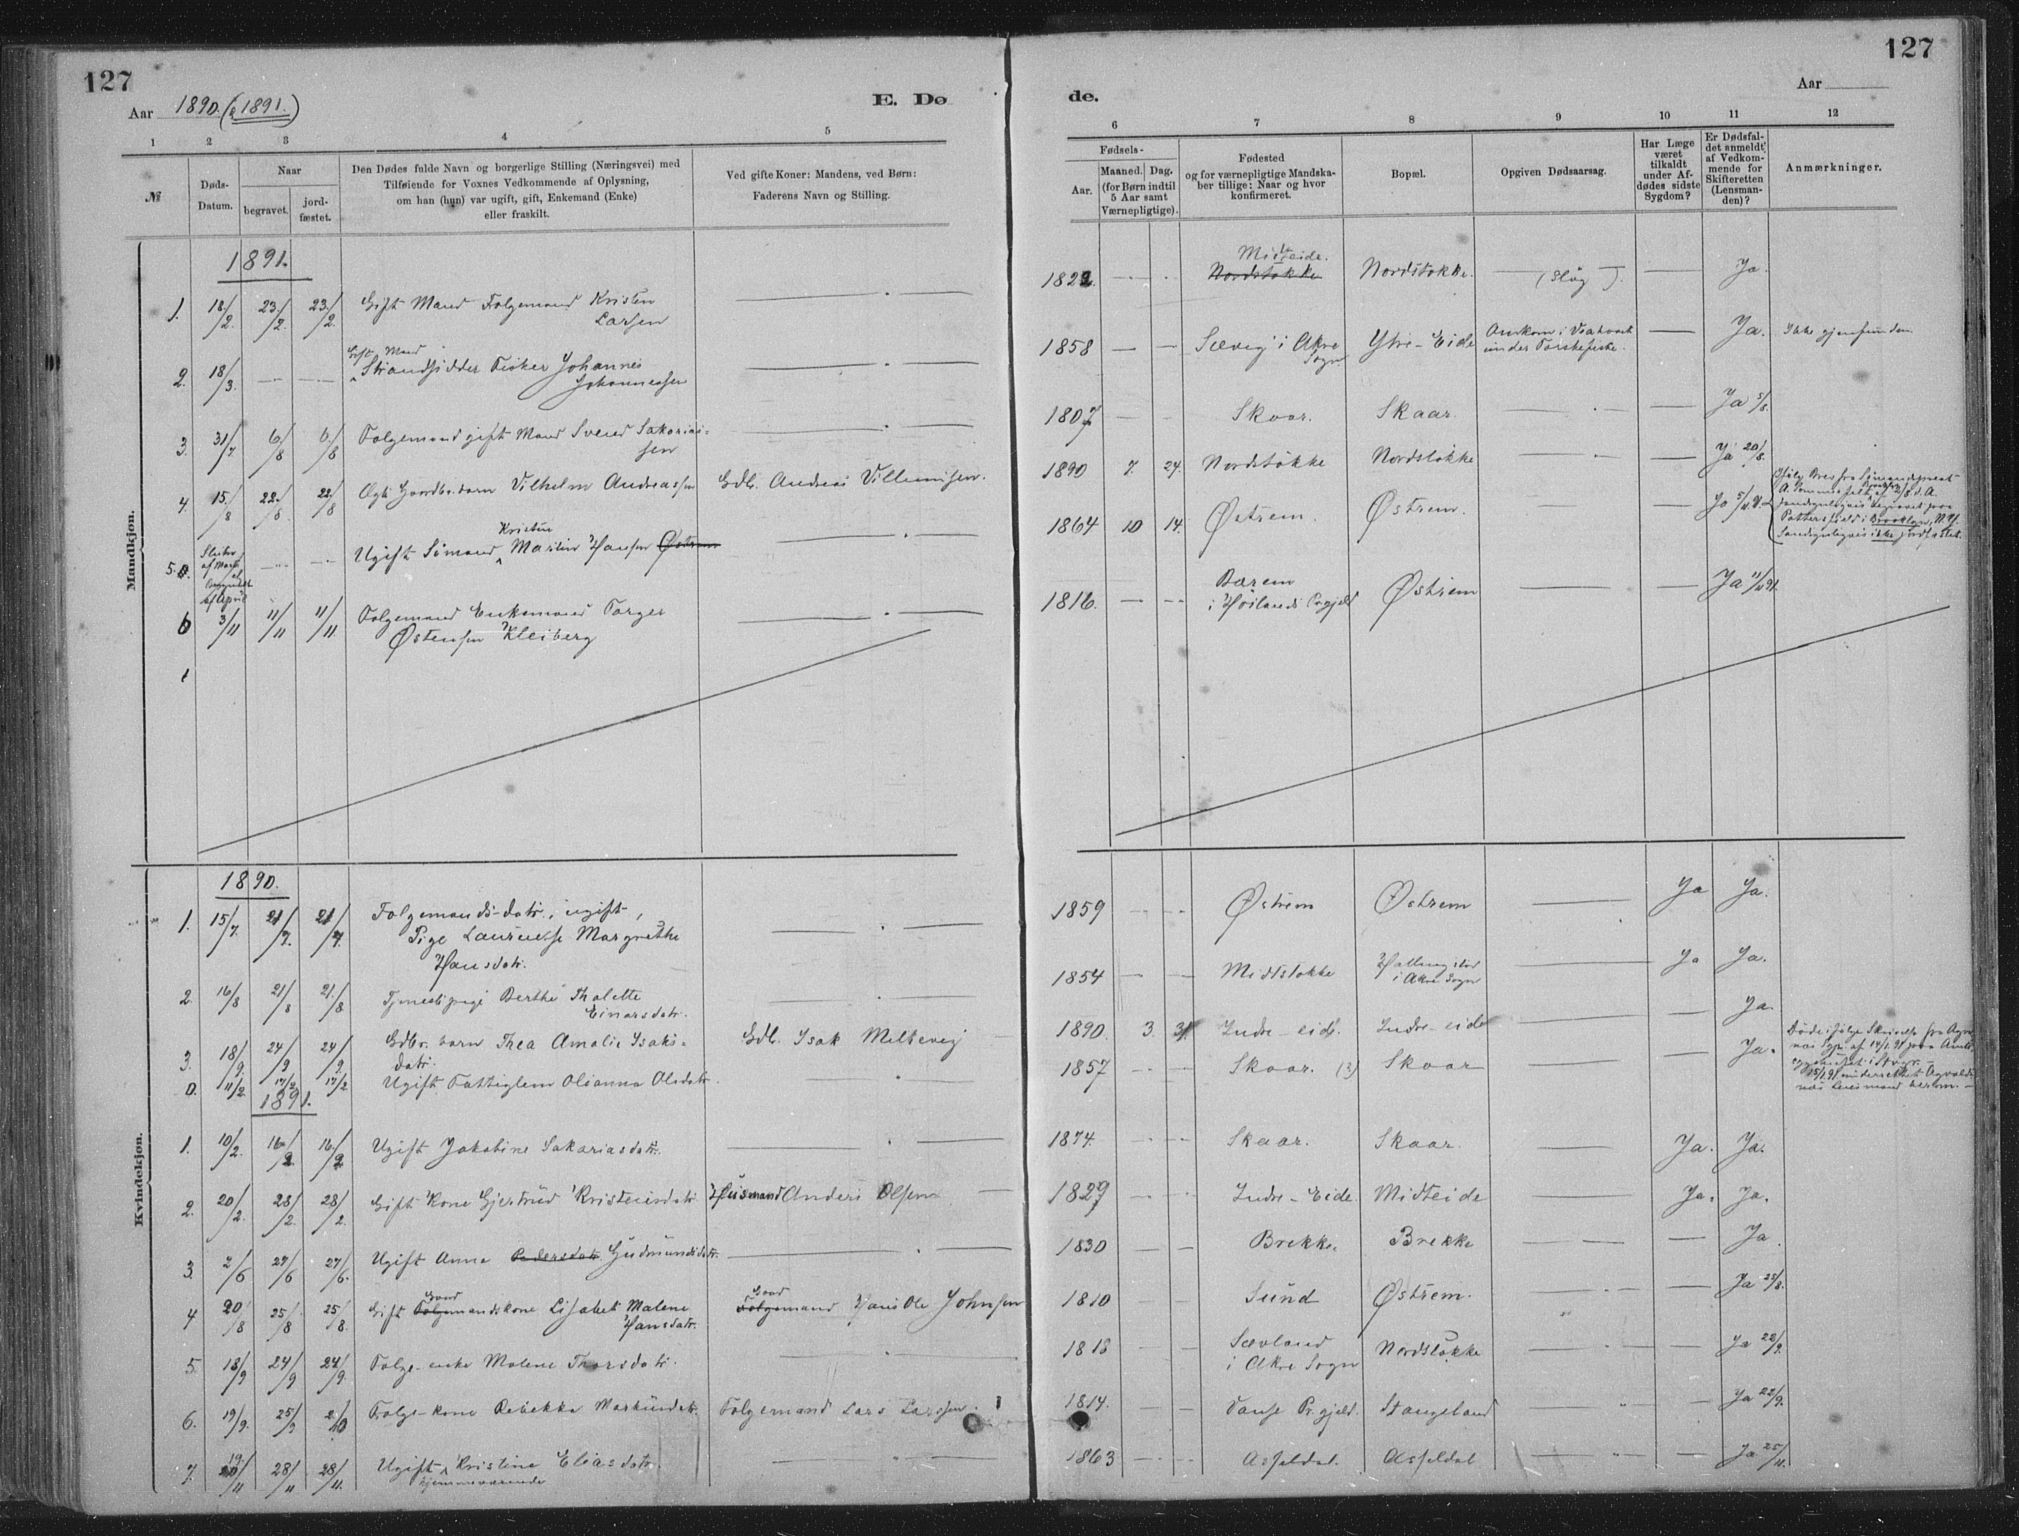 127
Aar 1890. (& 1891.)
E. Dø
1 2 3 4 5
№
Døds-
Datum.
Naar
begravet.
jord-
fæstet.
Den Dødes fulde Navn og borgerlige Stilling (Næringsvei) med
Tilføiende for Voxnes Vedkommende af Oplysning,
om han (hun) var ugift, gift, Enkemand (Enke)
eller fraskilt.
Ved gifte Koner: Mandens, ved Børn:
Faderens Navn og Stilling.
Mandkjøn.
1891.
1. 18/2. 23/2. 23/2. Gift Mand Folgemand Kristen
Larsen
2. 18/3. Gift Mand
Strandsidder Fisker Johannes
Johannessen
3. 31/7. 6/8 6/8 Folgemand gift Mand Svend Sakarias-
sen
4. 15/8 22/8 22/8 Ægte Gaardbr. barn Vilhelm Andreassen Gdb. Andreas Villumsen.
5. Slutn.
af Marts
el.
Begyndels.
af April
Ugift Sømand Kristen Martin Hansen Østrem
6 3/11 11/11 11/11 Folgemand Enkemand Torger
Østensen Kleiberg
Kvindekjøn.
1890.
1. 15/7. 21/7. 21/7. Folgemands-datr., ugift,
Pige Laurentse Margrethe
Hansdatr.
2. 16/8 21/8 21/8 Tjenestepige Berthe Thalette
Einarsdatr.
3. 18/9. 24/9 24/9. Gdbr. barn Thea Amalie Isaks-
datr. Gdb. Isak Meltevig
0. 11/2. 17/2 17/2 Ugift Fattiglem Olianna Olsdatr.
1891.
1. 10/2. 16/2 16/2 Ugift Jakobine Sakariasdatr.
2. 20/2. 28/2. 28/2. Gift Kone Gjertrud Kristensdatr. Husmand Anders Olsen
3. 2/6 27/6 27/6. Ugift Anna Pedersdatr Gudmundsdatr.
4 20/8 25/8 25/8. Gift Gaard Folgemandskone Lisabet Malene
Hansdatr. Gaard Folgemand Hans Ole Johnsen
5. 18/9 24/9 24/9. Folge-enke Malene Thorsdatr.
6. 19/9. 25/9 2/10 Folge-kone Rebekka Markusdatr. Folgemand Lars Larssen.
7. 19/11 28/11 28/11. Ugift Kristine Eliasdatr.
hjemmeværende
127
Aar
de.
6 7 8 9 10 11 12
Fødsels-
Aar.
Maaned. Dag.
(for Børn indtil
5 Aar samt
Værnepligtige).
Fødested
og for værnepligtige Mandska-
ber tillige: Naar og hvor
konfirmeret.
Bopæl.
Opgiven Dødsaarsag.
Har Læge
været
tilkaldt
under Af-
dødes sidste
Sygdom?
Er Dødsfal-
det anmeldt
af Vedkom-
mende for
Skifteretten
(Lensman-
den)?
Anmærkninger.
Midteide.
1822. Nordstokke Nordstokke. (Slag). Ja.
1858 Sævig i Akre
Sogn Ytre-Eide Omkom i
under Torskefiske. Ja. Ikke gjenfunden
1807 Skaar. Skaar. Ja 5/8.
1890 7. 24. Nordstokke Nordstokke Ja 20/8.
1864 10 14. Østrem. Østrem. Ja 5/11.91
Ifølge Brev fra Sømandspræst
begravet paa
Pottersfield i Brooklyn, N.Y.
Sandsynligvis ikke jordfæstet.
1816. Bærem
i Høilands Prgjeld Østrem Ja 11/11 91.
1859 Østrem Østrem Ja Ja.
1854 Midtstokke
i Akre Sogn Ja Ja.
1890. 3. 31. Indre-eide. Indre-eide Ja.
1857 Skaar. (?) Skaar Ja.
Døde ifølge Skrivelse fra
1874. Skaar. Skaar. Ja. Ja.
1829 Indre-Eide. Midteide Ja. Ja.
1830 Brekke. Brekke Ja.
1810 Sund Østrem. Ja 25/8.
1818 Sævland
i Akre Sogn Nordstokke Ja 22/9.
1814. Vanse Prgjeld. Stangeland Ja 22/9.
1863 Asfeldal. Asfeldal Ja 25/11.